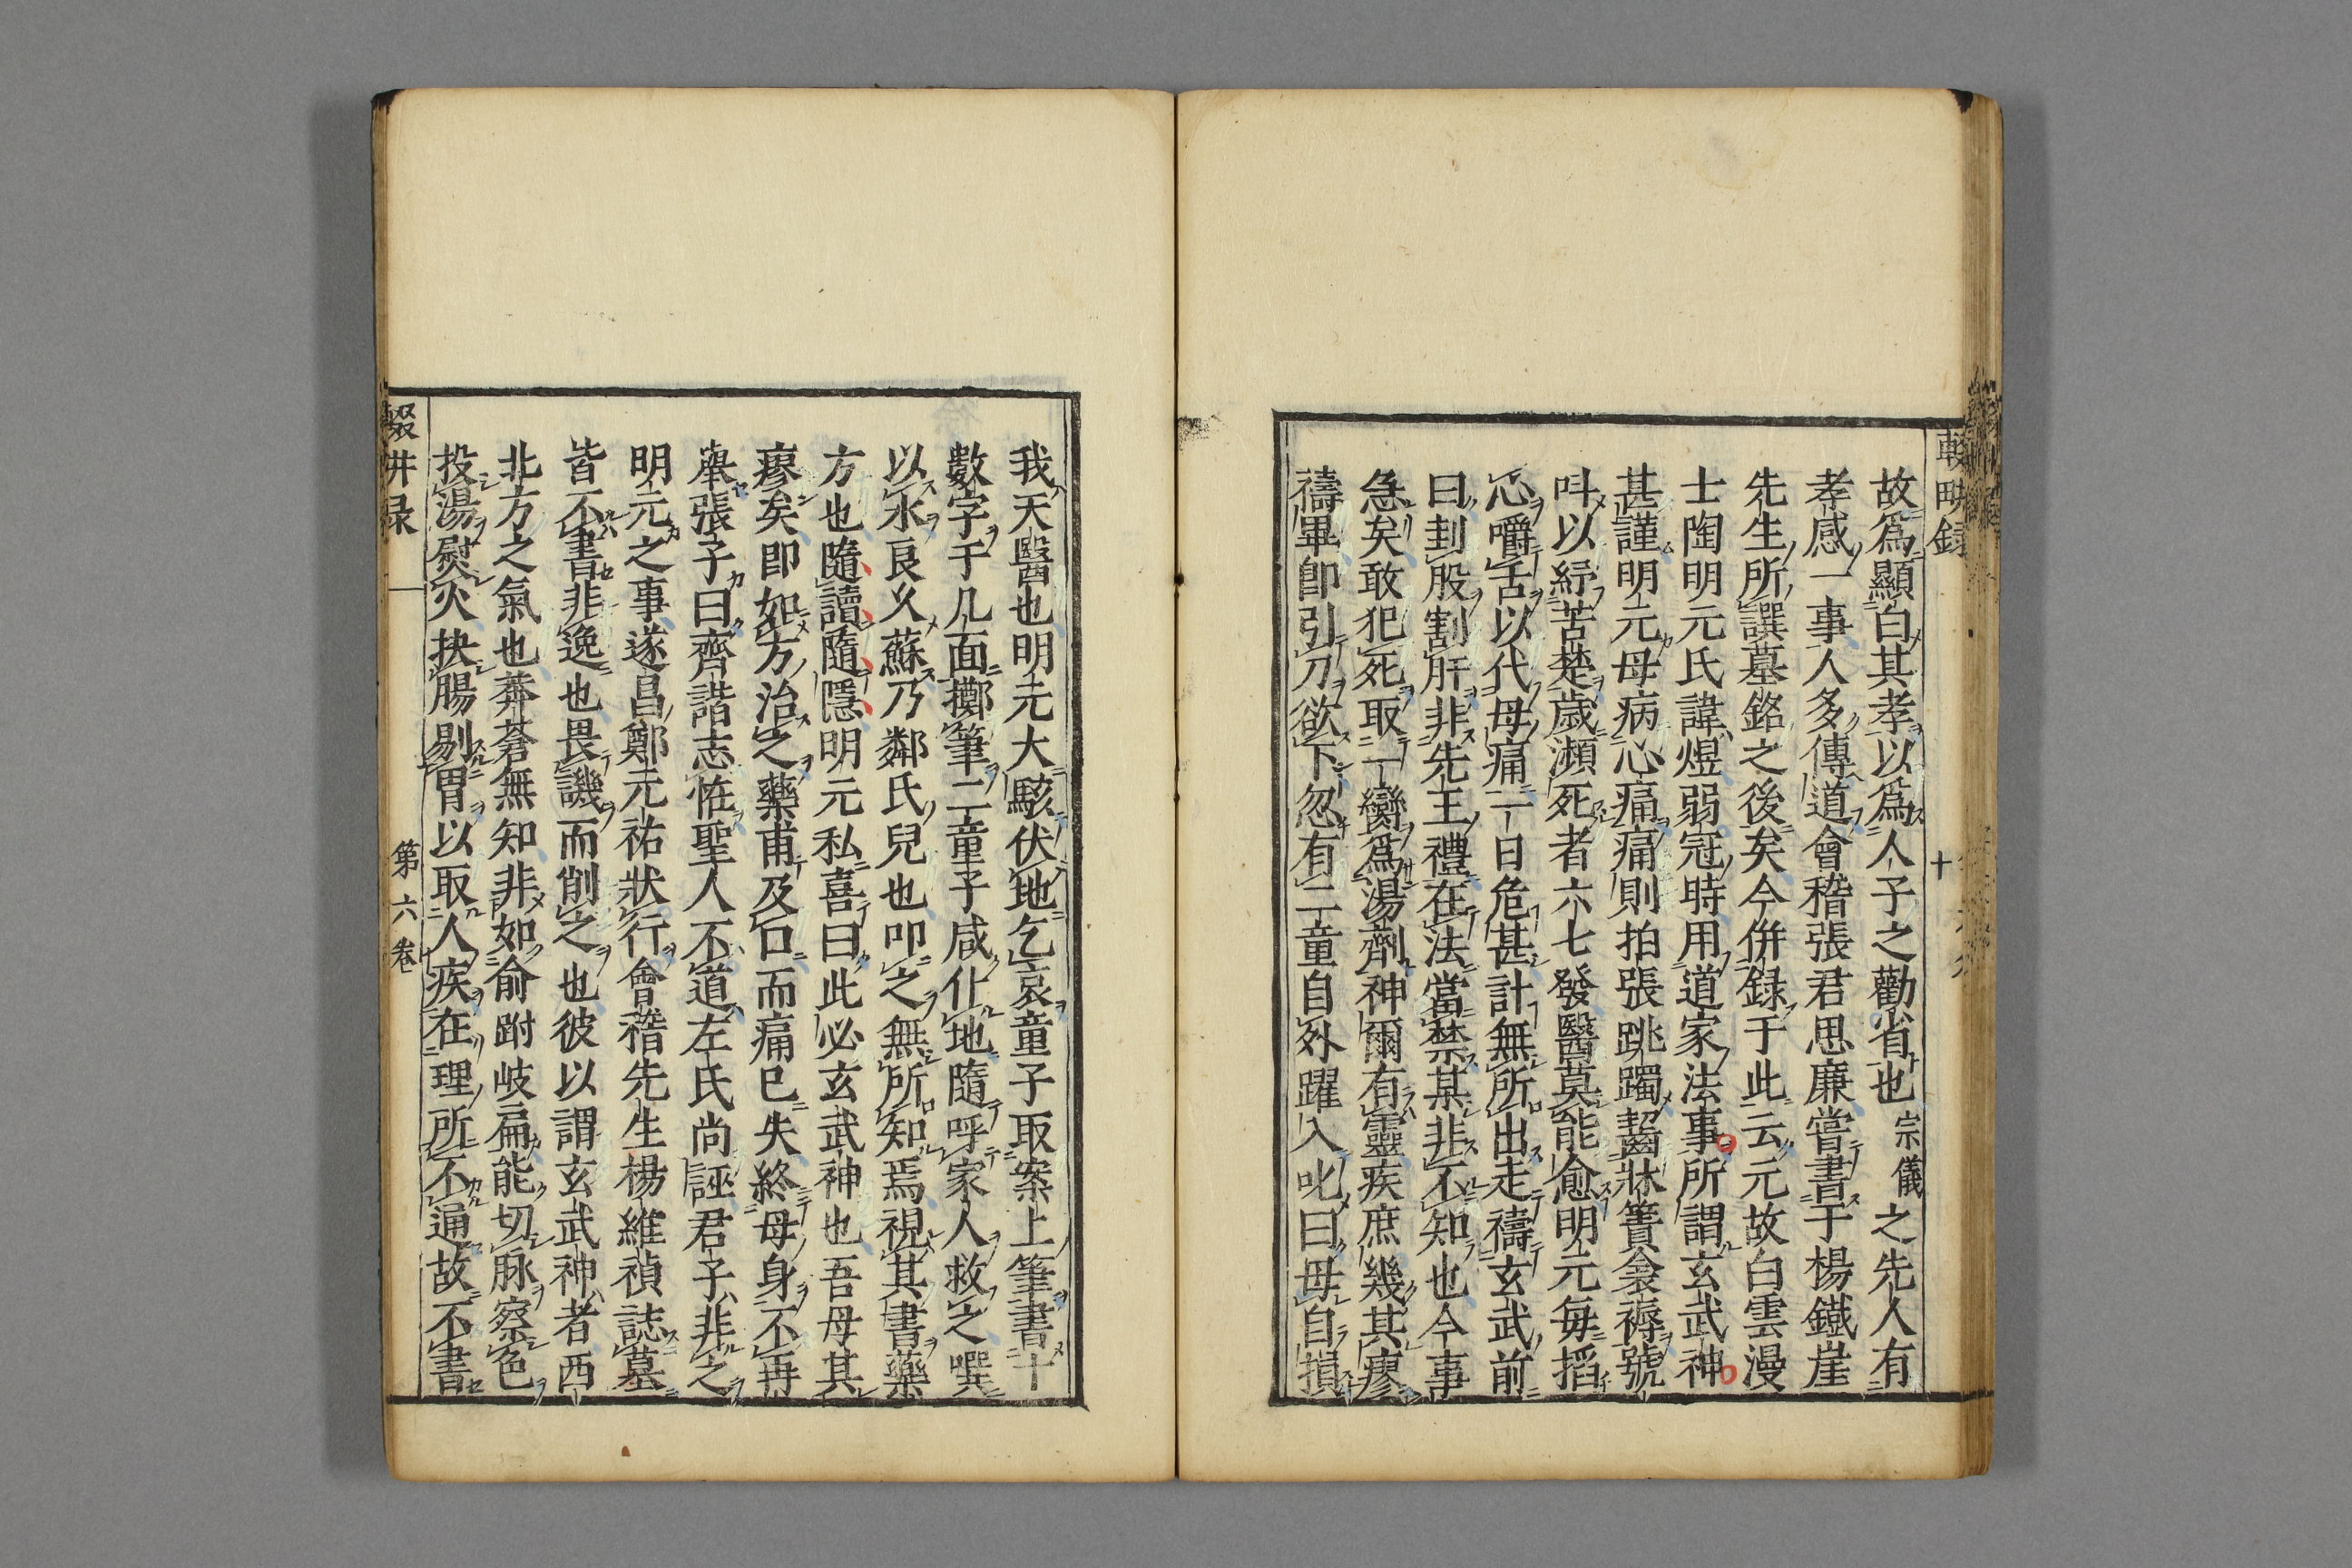 故爲顯白其孝以爲人子之勸省也宗儀之先人有
孝感一事人多傳道會稽張君思廉嘗書于楊鐵崖
先生所譔墓銘之後矣今併録于此云元故白雲漫
士陶明元氏諱煜弱冠時用道家法事所謂玄武神
甚謹明元母病心痛痛則拍張跳躅齧牀簀衾褥號
呌以紓苦楚歲瀕死者六七發醫莫能愈明元每搯
心嚼舌以代母痛一日危甚計無所出走禱玄武前
曰刲股割肝非先王禮在法當禁某非不知也今事
急矣敢犯死取一臠爲湯劑神爾有靈疾庶幾其瘳
禱畢卽引刀欲下忽有二童自外躍入叱曰毋自損
我天醫也明元大駭伏地乞哀童子取案上筆書十
數字于几面擲筆二童子咸仆地隨呼家人救之噀
以水良久蘇乃鄰氏兒也叩之無所知焉視其書藥
方也隨讀隨隱明元私喜曰此必玄武神也吾母其
瘳矣卽如方治之藥甫及口而痛已失終母身不再
舉張子曰齊諧志恠聖人不道左氏尚誣君子非之
明元之事遂昌鄭元祐狀行會稽先生楊維禎誌墓
皆不書非逸也畏譏而削之也彼以謂玄武神者西
北方之氣也莽蒼無知非如俞跗岐扁能切脉察色
投湯熨火抉腸剔胃以取人疾在理所不通故不書
輟耕録
第六卷